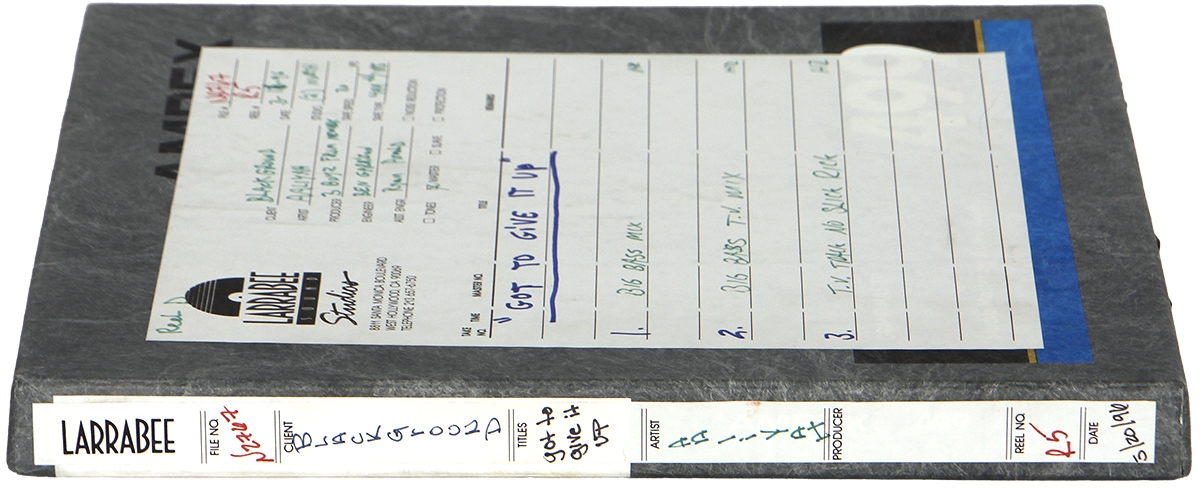 AMPEX
499
Reel D
LARRABEE
SOUND
Studios
8811 SANTA MONICA BOULEVARD
WEST HOLLYWOOD, CA 90069
TELEPHONE 213 657-6750
CLIENT BLACKGROUND
ARTIST AALIYAH
PRODUCER 3 BOYZ FROM NEWARK
ENGINEER BEN GARRISON
ASST. ENGR.
TONES MASTER SLAVE PROTECTION
FILE #
REEL # R5
DATE
STUDIO
TAPE SPEED
TAPE TYPE
NOISE REDUCTION
TAKE NO. TIME MASTER NO. TITLE REMARKS
"GOT TO GIVE IT UP"
1. BIG BASS MIX
2. BIG BABS T.V. MIX
3. T.V. TRACK NO SLICK RICK
LARRABEE
FILE NO. N2747
CLIENT BLACKGROUND
TITLES got to
give it
UP
ARTIST AALIYAH
PRODUCER
REEL NO. R5
DATE 5/20/96